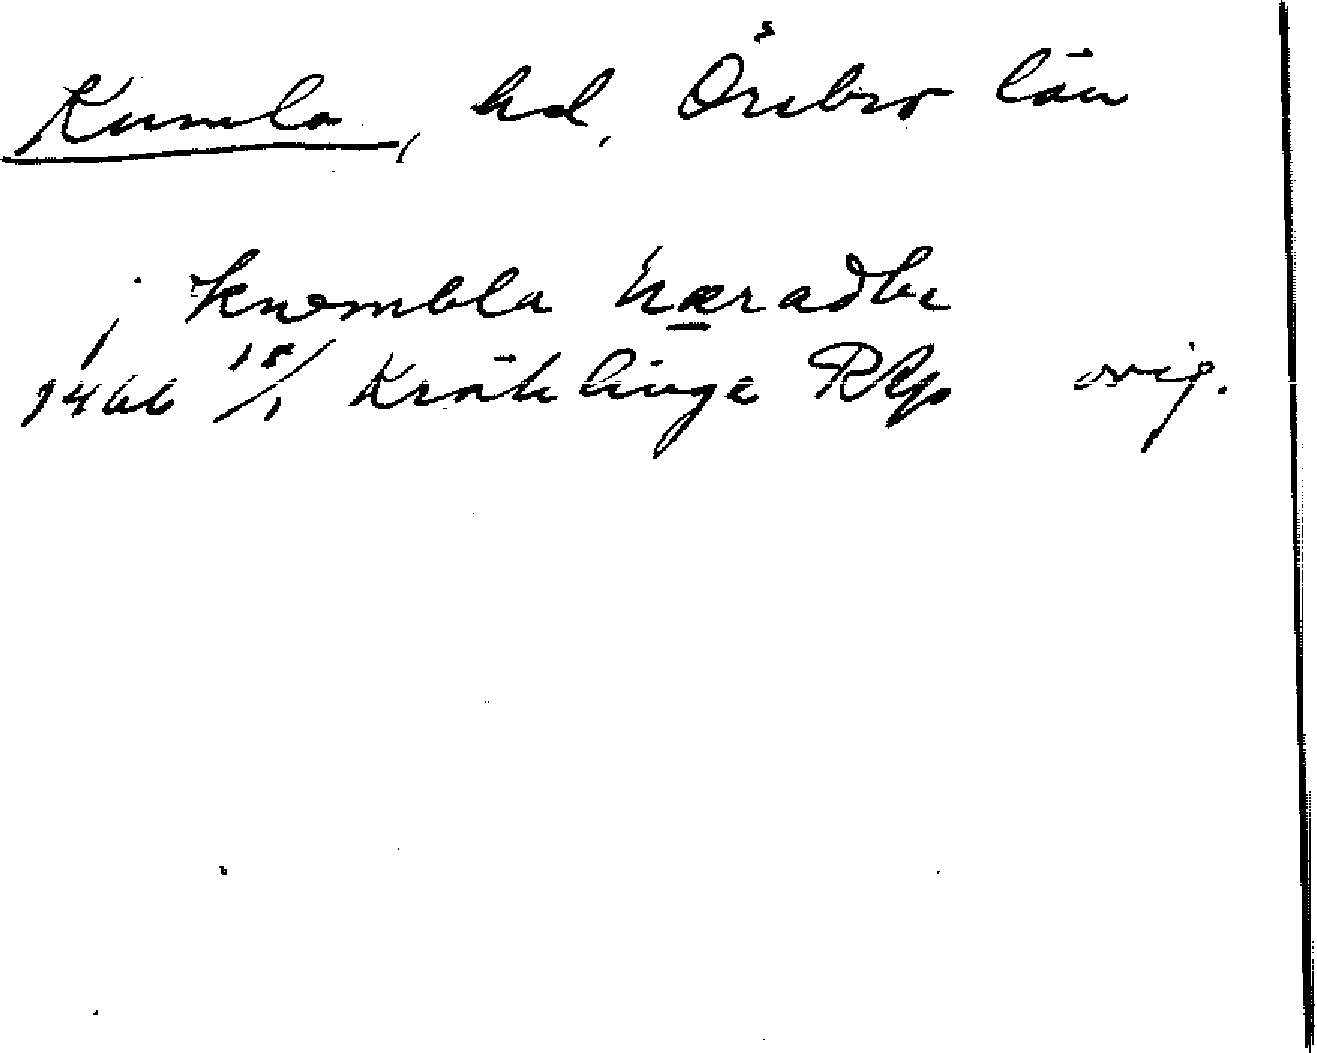 Kumla, hd, Örebro län
j kumbla hæradhe
1466 18/1 Kräklinge RAp orig.